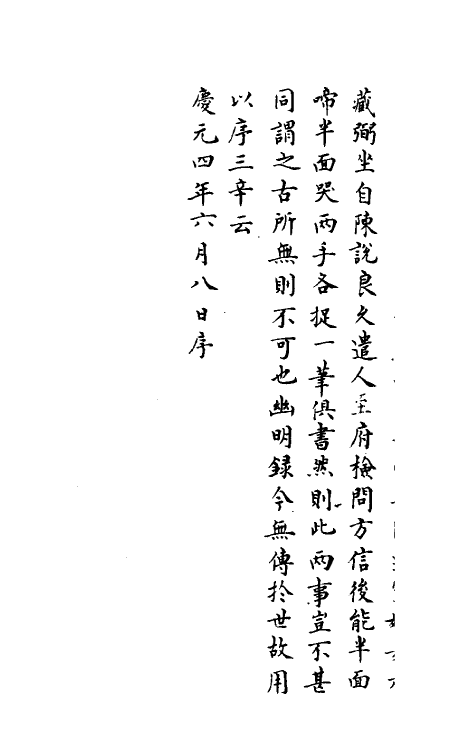 藏彌坐自陳說良久遣人至府檢問方信後能半面
啼半面哭兩手各捉一筆俱書然則此兩事豈不甚
同謂之古所無則不可也幽明録今無傳扵世故用
以序三辛云
慶元四年六月八日序